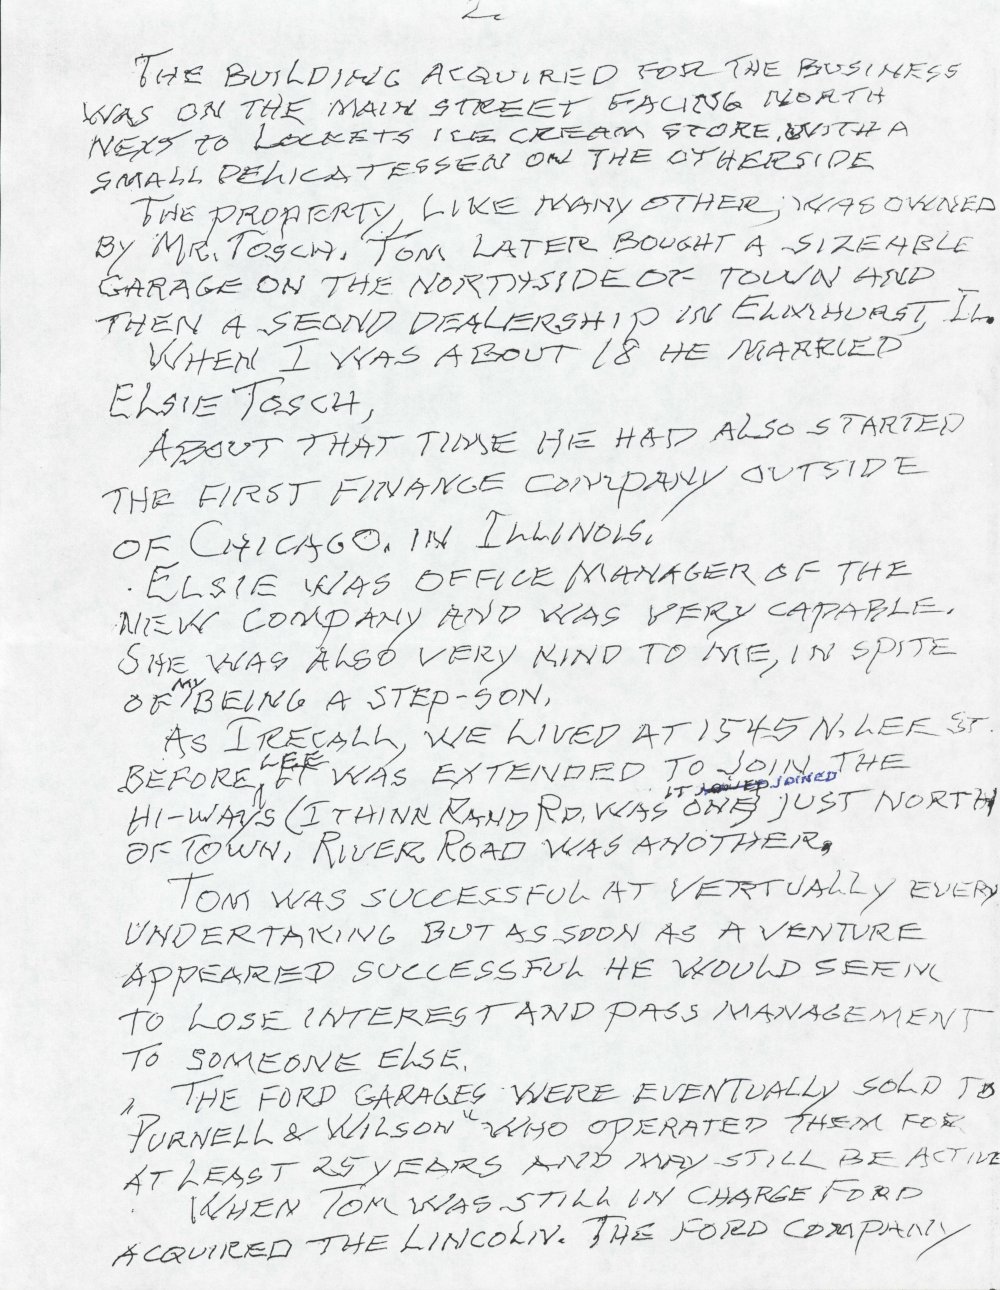 2.
THE BUILDING ACQUIRED FOR THE BUSINESS
WAS ON THE MAIN STREET FACING NORTH
NEXT TO LOCKETS ICE CREAM STORE, WITH A
SMALL DELICATESSEN ON THE OTHERSIDE
THE PROPERTY, LIKE MANY OTHER, WAS OWNED
BY MR. TOSCH. TOM LATER BOUGHT A SIZEABLE
GARAGE ON THE NORTHSIDE OF TOWN AND
THEN A SEOND DEALERSHIP IN ELMHURST, IL.
WHEN I WAS ABOUT 18 HE MARRIED
ELSIE TOSCH,
ABOUT THAT TIME HE HAD ALSO STARTED
THE FIRST FINANCE COMPANY OUTSIDE
OF CHICAGO. IN ILLINOIS.
ELSIE WAS OFFICE MANAGER OF THE
NEW COMPANY AND WAS VERY CAPABLE.
SHE WAS ALSO VERY KIND TO ME, IN SPITE
OF MY BEING A STEP-SON.
AS I RECALL, WE LIVED AT 1545 N. LEE ST.
BEFORE, LEE WAS EXTENDED TO JOIN THE
HI-WAYS (I THINK RAND RD. WAS ONE) IT JOINED JUST NORTH
OF TOWN. RIVER ROAD WAS ANOTHER.
TOM WAS SUCCESSFUL AT VERTUALLY EVERY
UNDERTAKING BUT AS SOON AS A VENTURE
APPEARED SUCCESSFUL HE WOULD SEEM
TO LOSE INTEREST AND PASS MANAGEMENT
TO SOMEONE ELSE.
THE FORD GARAGES WERE EVENTUALLY SOLD TO
"PURNELL & WILSON" WHO OPERATED THEM FOR
AT LEAST 25 YEARS AND MAY STILL BE ACTIVE
WHEN TOM WAS STILL IN CHARGE FORD
ACQUIRED THE LINCOLN. THE FORD COMPANY